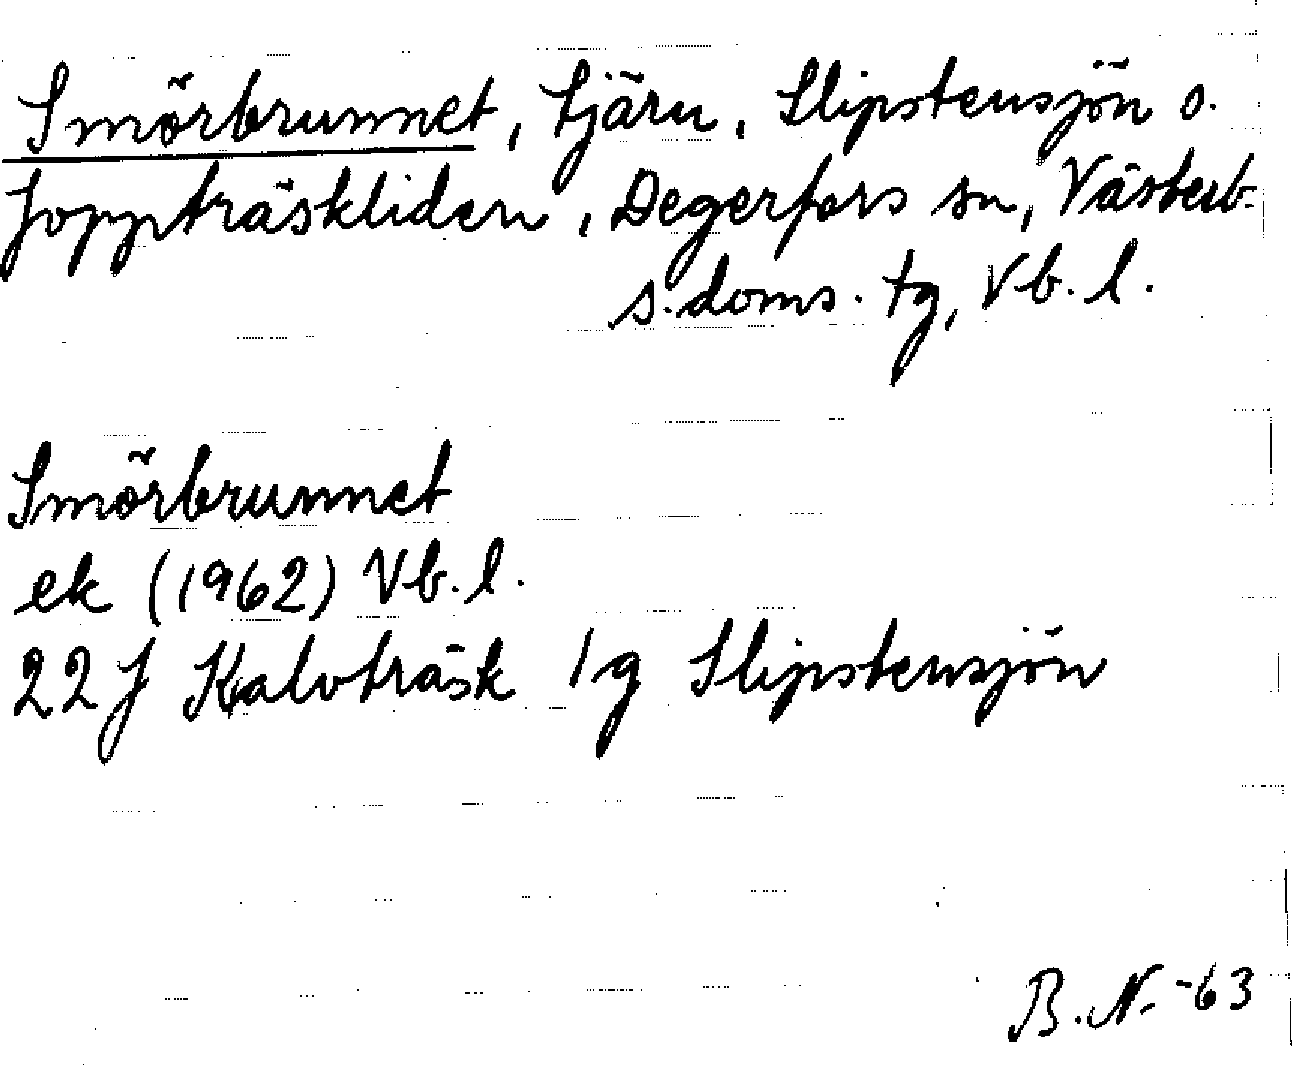 Smörbrunnet, tjärn, Slipstensjön o.
Joppträskliden, Degerfors sn, Västerb-
s. doms. tg, Vb. l.
Smörbrunnet
ek (1962) Vb. l.
22 J Kalvträsk 1 g Slipstensjön
B. N. -63